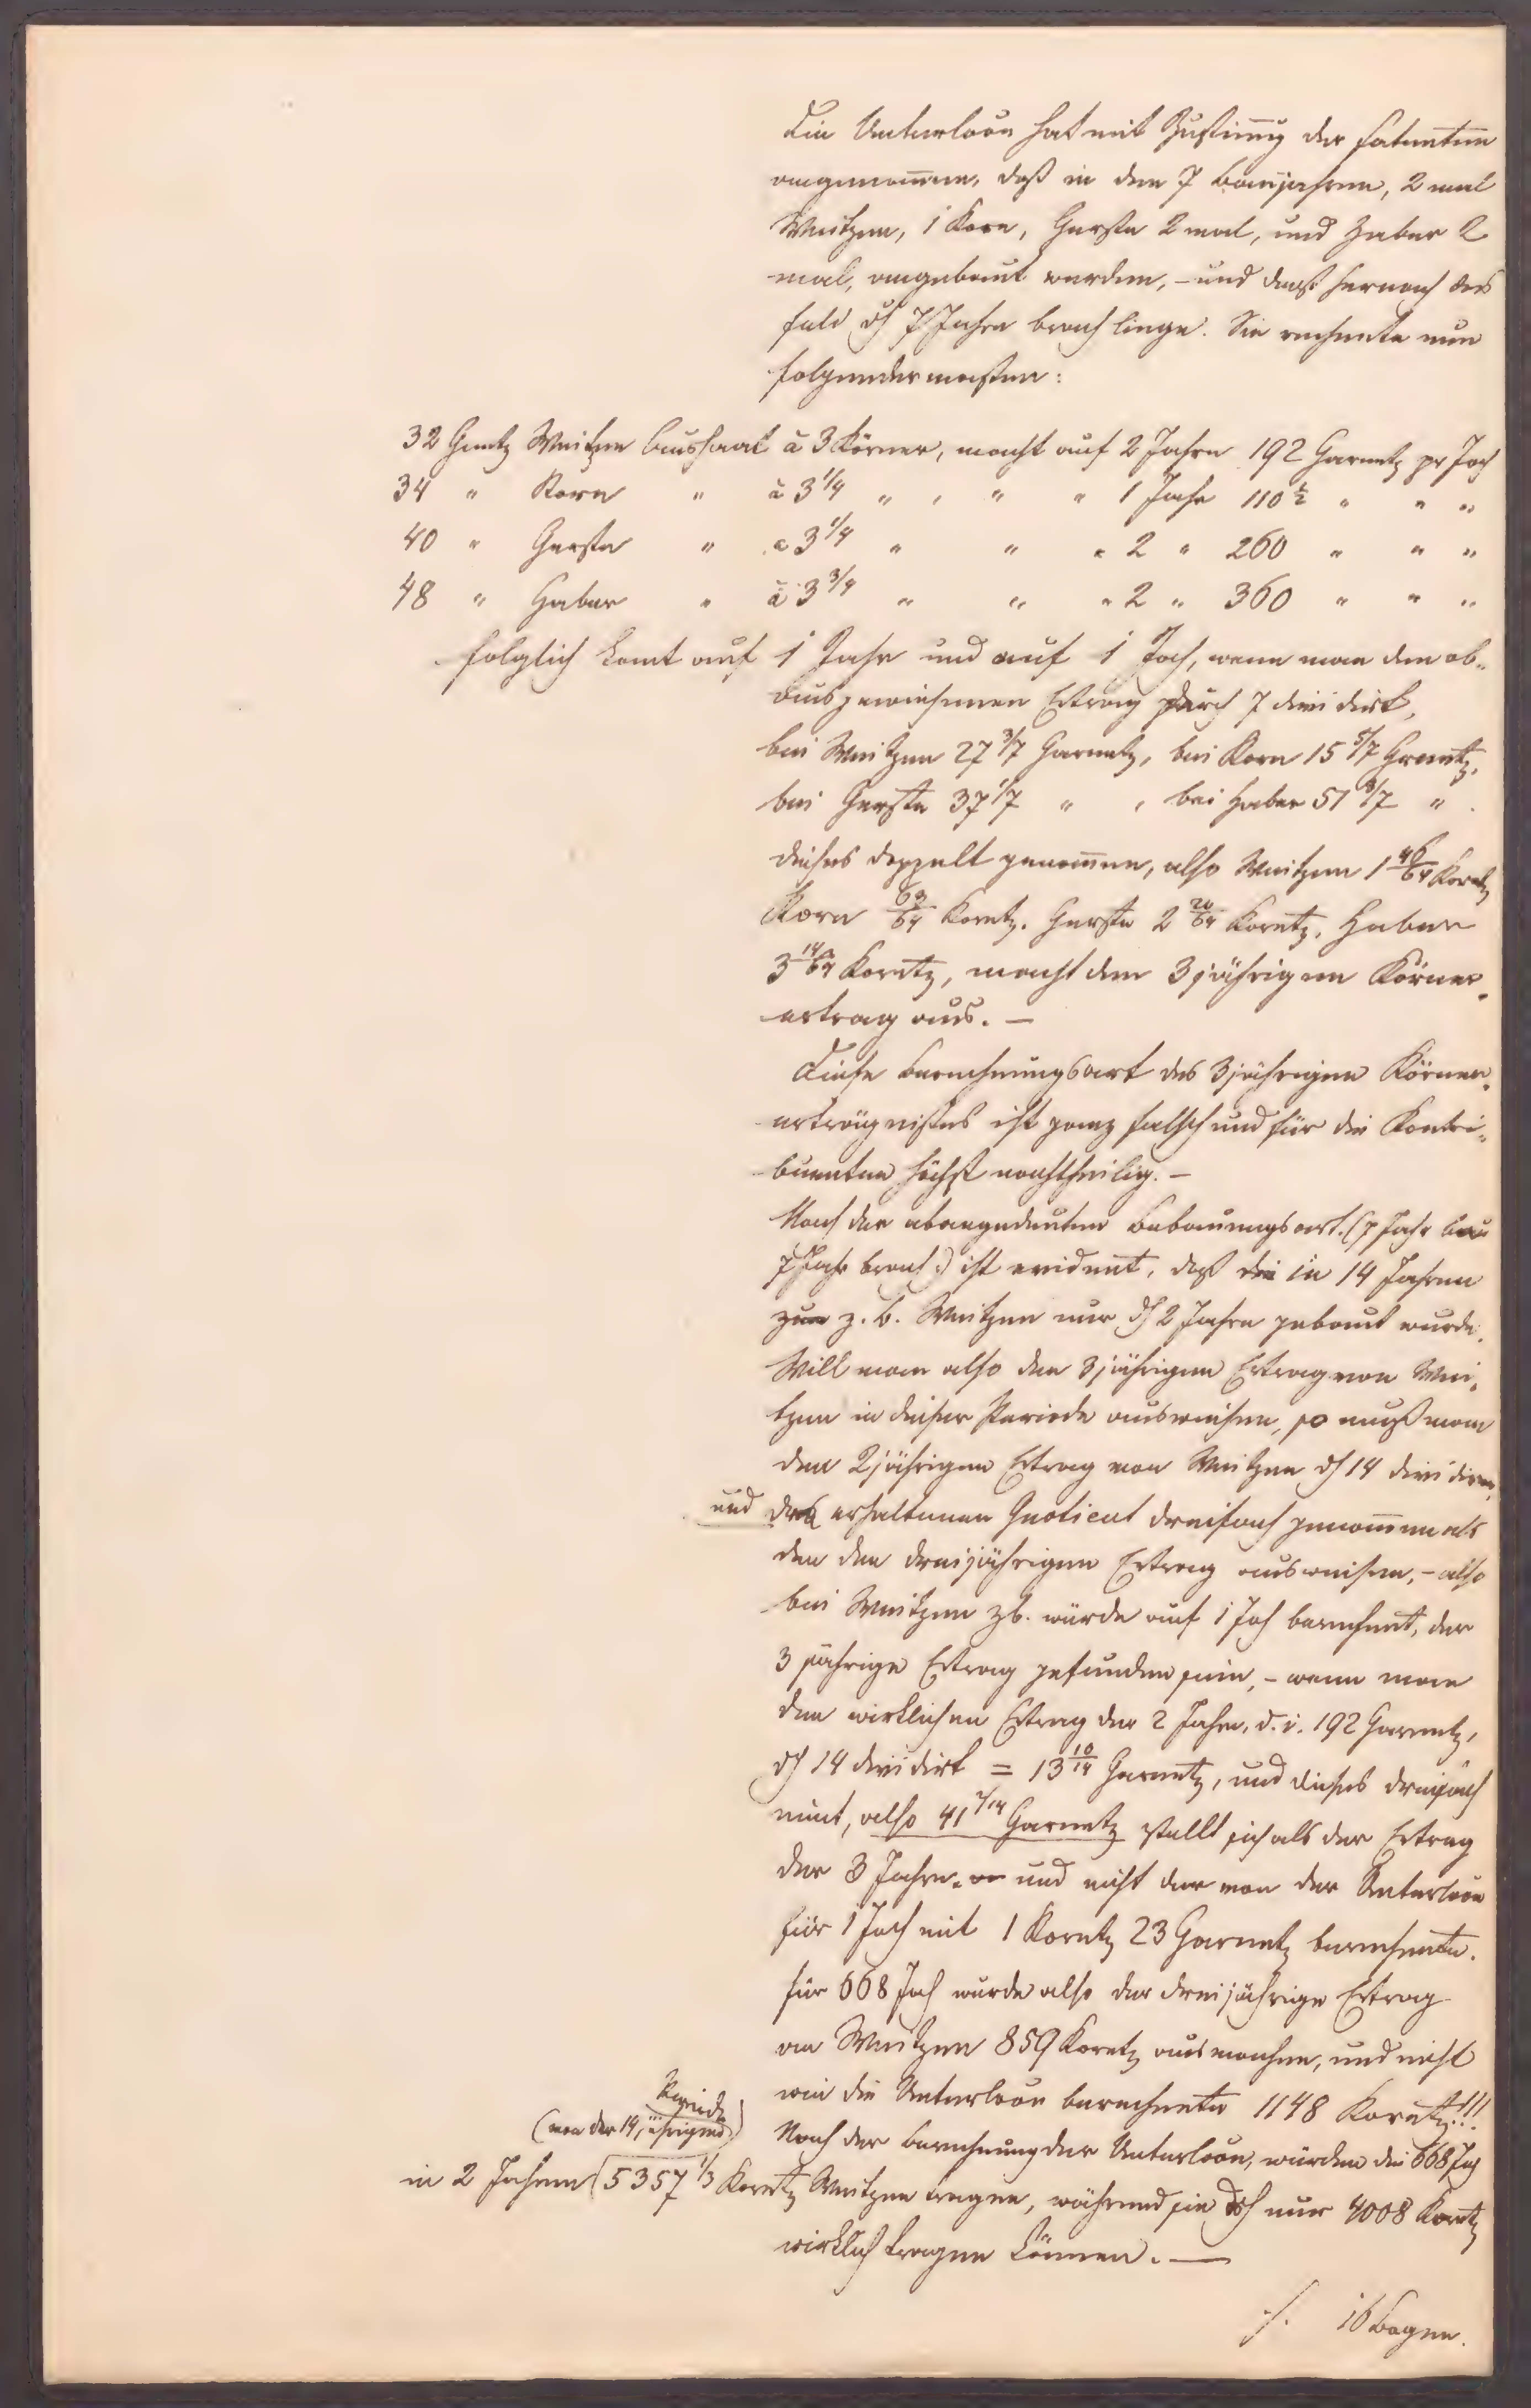 Die Unterloon hat mit Zustimung der Fatenten
angenommen, daß in den 7 Baujahren, 2 mal
Weitzen, 1 Korn, Gerste 2 mal, und Haber 2
mal, angebaut werden, – und daß hernach das
Feld dh 7 Jahre brach liege. Sie rechnete nun
folgendermaßen:
32 Gartz Weitzen Aussaat à 3 Körner, macht auf 2 Jahre 192 Garnetz pr Joch
34 " Korn " à 3 1/4 " " " 1 Jahr 110 1/2 " " "
40 " Gerste " à 3 1/4 " " " 2 " 260 " " "
48 " Haber " à 3 3/4 " " " 2 " 360 " " "
folglich komt auf 1 Jahr und auf 1 Joch, wenn man den ob-
ausgewiesenen Ertrag durch 7 dividirt,
bei Weitzen 27 3/7 Garnetz, bei Korn 15 5/7 Garnetz,
bei Gerste 37 1/7 " , bei Haber 51 3/7 " .
dieses doppelt genommen, also Weitzen 1 46/64 Koretz
Korn 63/64 Koretz. Gerste 2 20/64 Koretz, Haber
3 14/64 Koretz, macht den 3jährigen Körner-
ertrag aus. –
Diese Berechnungsart des 3jährigen Körner-
erträgnißes ist ganz falsch und für die Kontri-
buenten höchst nachtheilig. –
Nach der obangedeuten Bebauungsart (7 Jahr bau
7 Jahr brach:) ist evident, daß die in 14 Jahren
zum z. b. Weitzen nur dh 2 Jahre gebaut wurde.
Will man also den 3jährigen Ertrag von Wei-
tzen in dieser Periode ausweisen, so muß man
den 2jährigen Ertrag von Weitzen dh 14 dividiren,
und den erhaltenen Quotient dreifach genommen als
den den dreijährigen Ertrag ausweisen, – also
bei Weitzen zb. würde auf 1 Joch berechnet, der
3 jährige Ertrag gefunden sein, – wenn man
den wirklichen Ertrag der 2 Jahre, d. i. 192 Garnetz,
dh 14 dividirt = 13 10/14 Garnetz, und dieses dreifach
nimt, also 41 2/14 Garnetz stellt sich als der Ertrag
der 3 Jahre. und nicht der von der Unterloon
für 1 Joch mit 1 Koretz 23 Garnetz berechnete.
für 668 Joch wurde also der dreijährige Ertrag
an Weitzen 859 Koretz ausmachen, und nicht
wie die Unterloon berechnete 1148 Koretz!!!
Nach der Berechnung der Unterloon, würden die 668 Joch
(von der 14jährigen Periode)
in 2 Jahren 5357 1/3 Koretz Weitzen tragen, während sie doch nur 4008 Koretz
wirklich tragen können. –
/. 16 Bogen.